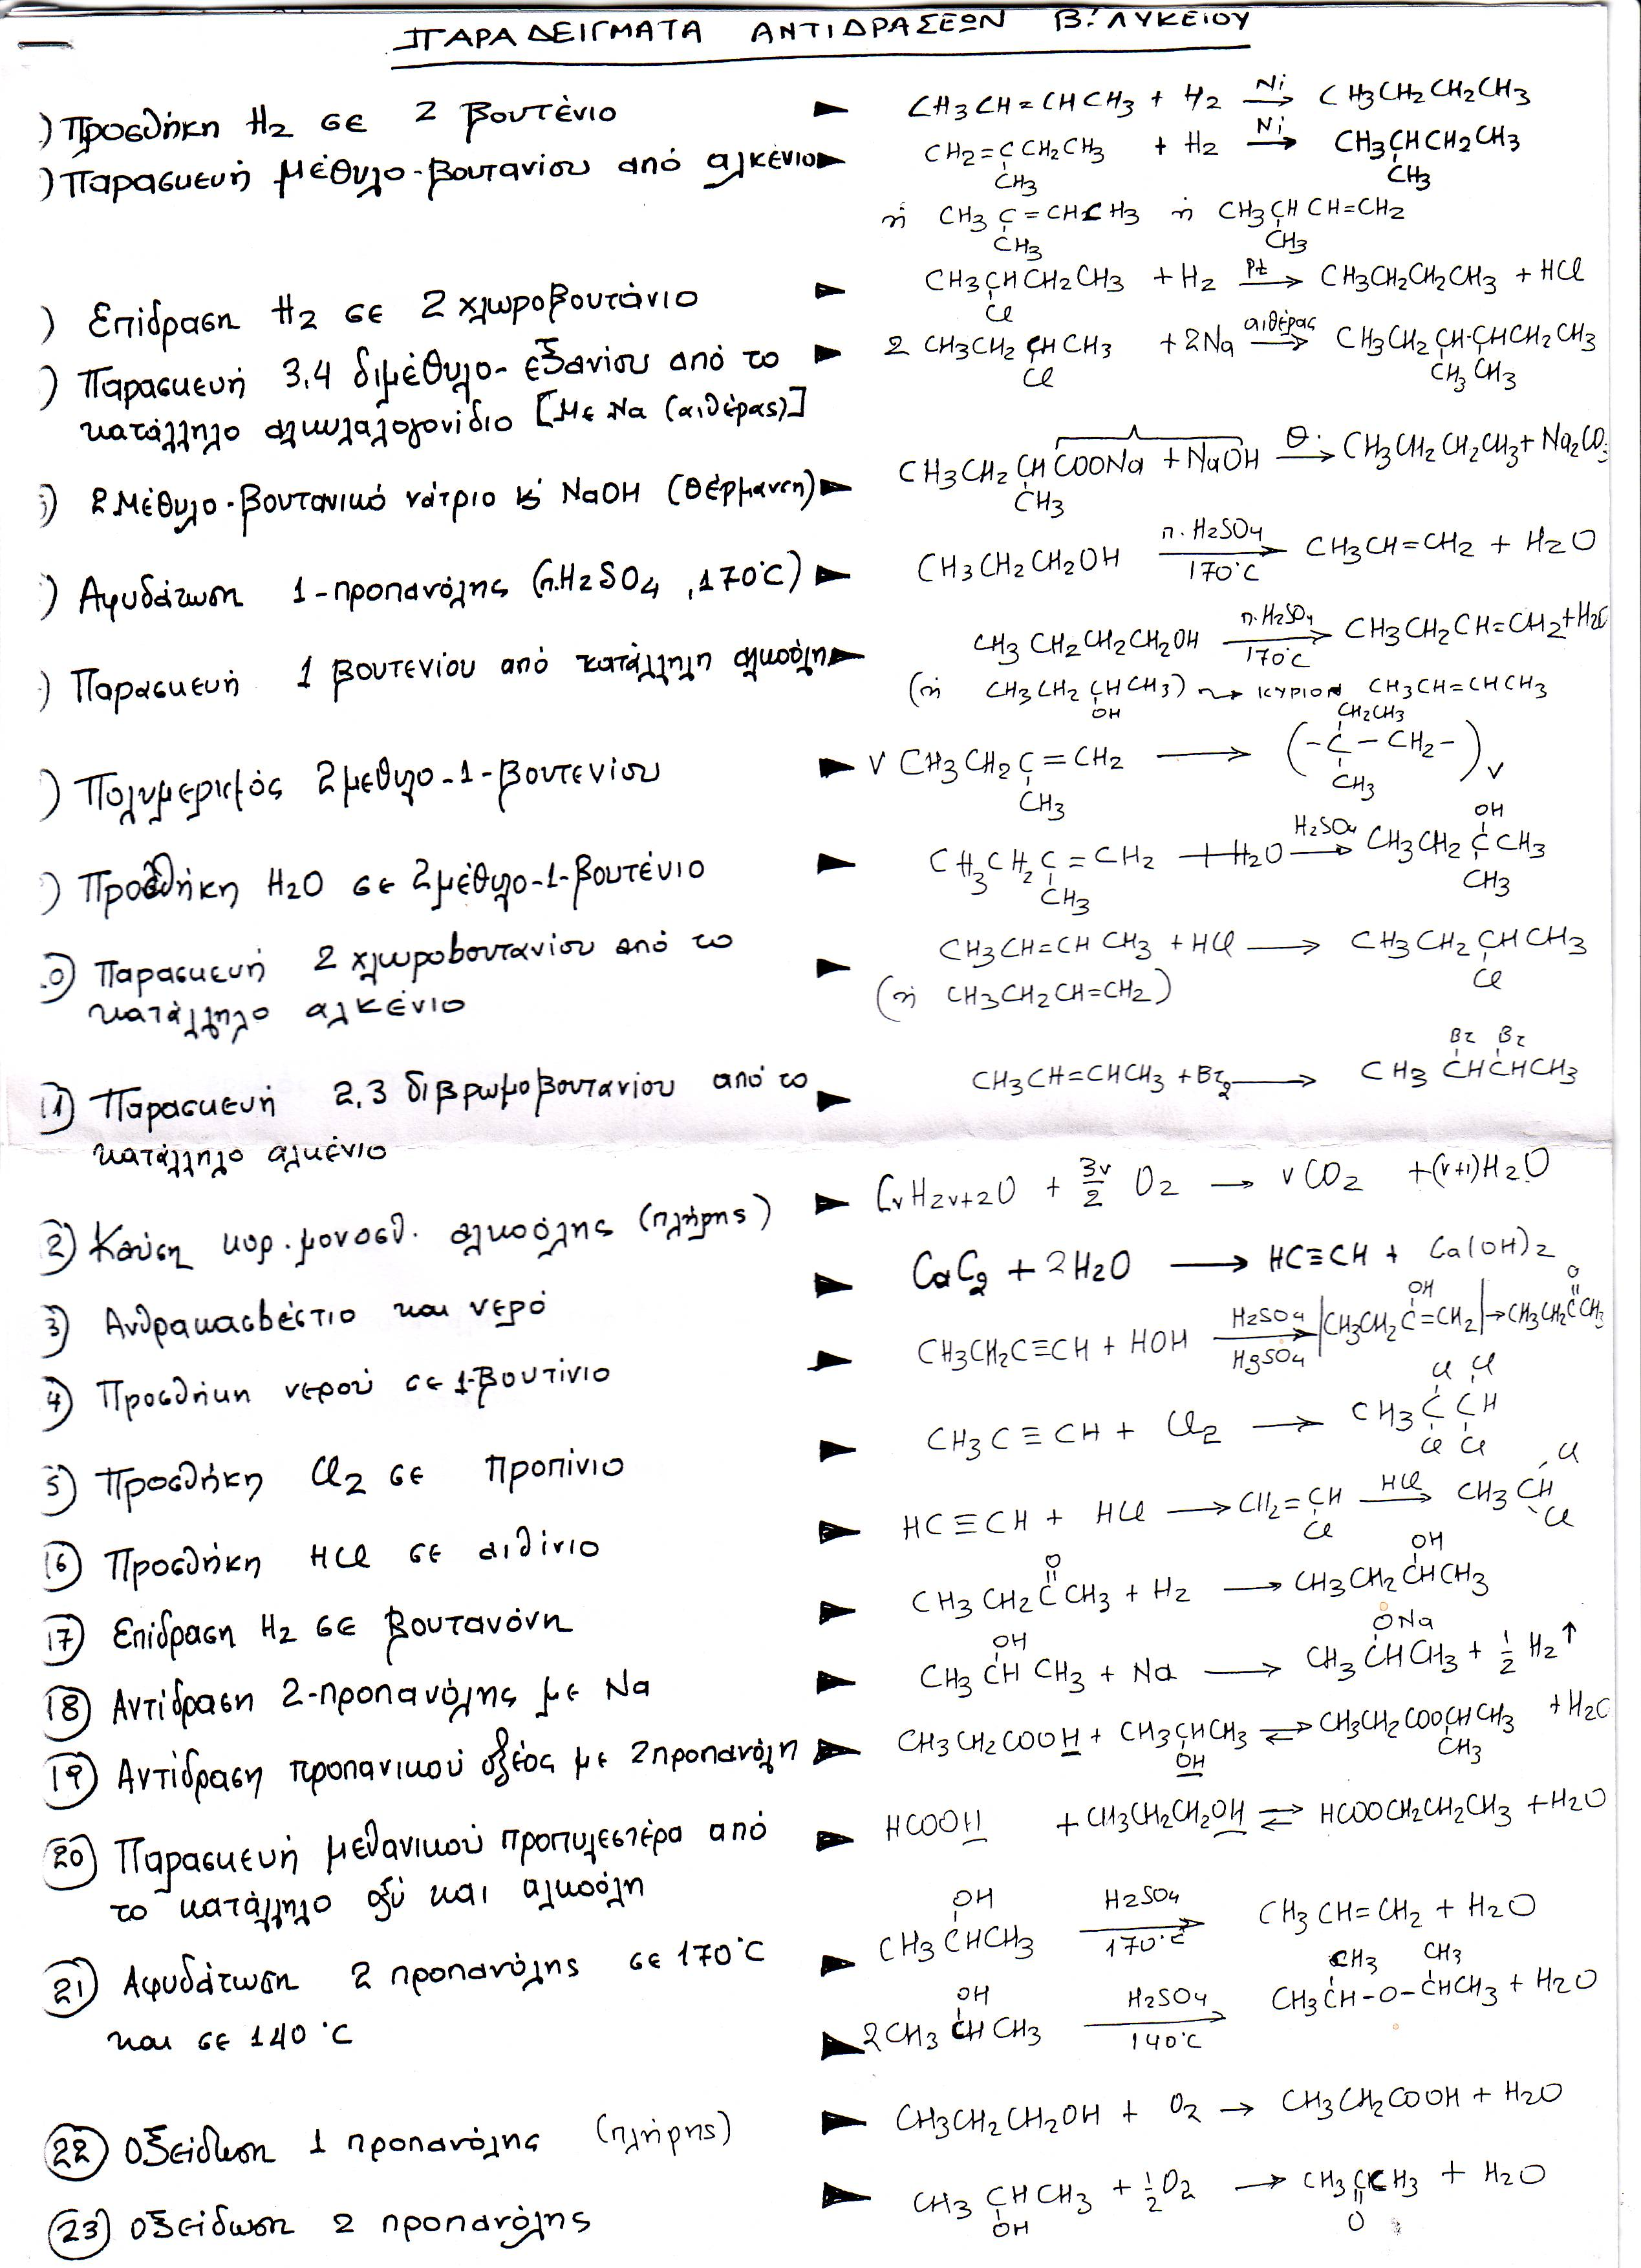 ΠΑΡΑΔΕΙΓΜΑΤΑ ΑΝΤΙΔΡΑΣΕΩΝ Β΄ ΛΥΚΕΙΟΥ
) Προσθήκη H2 σε 2 βουτένιο ► CH3CH=CHCH3 + H2 —Ni→ CH3CH2CH2CH3
) Παρασκευή μέθυλο-βουτανίου από αλκένιο ► CH2=C(CH3)CH2CH3 + H2 —Ni→ CH3CH(CH3)CH2CH3
ή CH3C(CH3)=CHCH3 ή CH3CH(CH3)CH=CH2
) Επίδραση H2 σε 2 χλωροβουτάνιο ► CH3CH(Cl)CH2CH3 + H2 —Pt→ CH3CH2CH2CH3 + HCl
) Παρασκευή 3,4 διμέθυλο-εξανίου από το ► 2 CH3CH2CH(Cl)CH3 + 2Na —αιθέρας→ CH3CH2CH(CH3)-CH(CH3)CH2CH3
κατάλληλο αλκυλαλογονίδιο [με Na (αιθέρας)]
) 2 μέθυλο-βουτανικό νάτριο κ' NaOH (θέρμανση) ► CH3CH2CH(CH3)COONa + NaOH —θ.→ CH3CH2CH2CH3 + Na2CO3
) Αφυδάτωση 1-προπανόλης (π.H2SO4, 170°C) ► CH3CH2CH2OH —π.H2SO4, 170°C→ CH3CH=CH2 + H2O
) Παρασκευή 1 βουτενίου από κατάλληλη αλκοόλη ► CH3CH2CH2CH2OH —π.H2SO4, 170°C→ CH3CH2CH=CH2 + H2O
(ή CH3CH2CH(OH)CH3) ⇝ ΚΥΡΙΟΝ CH3CH=CHCH3
) Πολυμερισμός 2 μεθυλο-1-βουτενίου ► ν CH3CH2C(CH3)=CH2 → (-C(CH2CH3)(CH3)-CH2-)ν
) Προσθήκη H2O σε 2 μέθυλο-1-βουτένιο ► CH3CH2C(CH3)=CH2 + H2O —H2SO4→ CH3CH2C(OH)(CH3)CH3
0) Παρασκευή 2 χλωροβουτανίου από το ► CH3CH=CHCH3 + HCl → CH3CH2CH(Cl)CH3
κατάλληλο αλκένιο (ή CH3CH2CH=CH2)
11) Παρασκευή 2,3 διβρωμοβουτανίου από το ► CH3CH=CHCH3 + Br2 → CH3CH(Br)CH(Br)CH3
κατάλληλο αλκένιο
2) Καύση κορ. μονοσθ. αλκοόλης (πλήρης) ► CνH2ν+2O + 3ν/2 O2 → νCO2 + (ν+1)H2O
3) Ανθρακασβέστιο και νερό ► CaC2 + 2H2O → HC≡CH + Ca(OH)2
4) Προσθήκη νερού σε 1-βουτίνιο ► CH3CH2C≡CH + HOH —H2SO4, HgSO4→ |CH3CH2C(OH)=CH2| → CH3CH2C(=O)CH3
5) Προσθήκη Cl2 σε προπίνιο ► CH3C≡CH + Cl2 → CH3C(Cl)(Cl)CH(Cl)(Cl)
16) Προσθήκη HCl σε αιθίνιο ► HC≡CH + HCl → CH2=CH(Cl) —HCl→ CH3CH(Cl)(Cl)
17) Επίδραση H2 σε βουτανόνη ► CH3CH2C(=O)CH3 + H2 → CH3CH2CH(OH)CH3
18) Αντίδραση 2-προπανόλης με Na ► CH3CH(OH)CH3 + Na → CH3CH(ONa)CH3 + 1/2 H2↑
19) Αντίδραση προπανικού οξέος με 2 προπανόλη ► CH3CH2COOH + CH3CH(OH)CH3 ⇌ CH3CH2COOCH(CH3)CH3 + H2O
20) Παρασκευή μεθανικού προπυλεστέρα από ► HCOOH + CH3CH2CH2OH ⇌ HCOOCH2CH2CH3 + H2O
το κατάλληλο οξύ και αλκοόλη
21) Αφυδάτωση 2 προπανόλης σε 170°C ► CH3CH(OH)CH3 —H2SO4, 170°C→ CH3CH=CH2 + H2O
και σε 140°C ► 2CH3CH(OH)CH3 —H2SO4, 140°C→ CH3CH(CH3)-O-CH(CH3)CH3 + H2O
22) Οξείδωση 1 προπανόλης (πλήρης) ► CH3CH2CH2OH + O2 → CH3CH2COOH + H2O
23) Οξείδωση 2 προπανόλης ► CH3CH(OH)CH3 + 1/2 O2 → CH3C(=O)CH3 + H2O